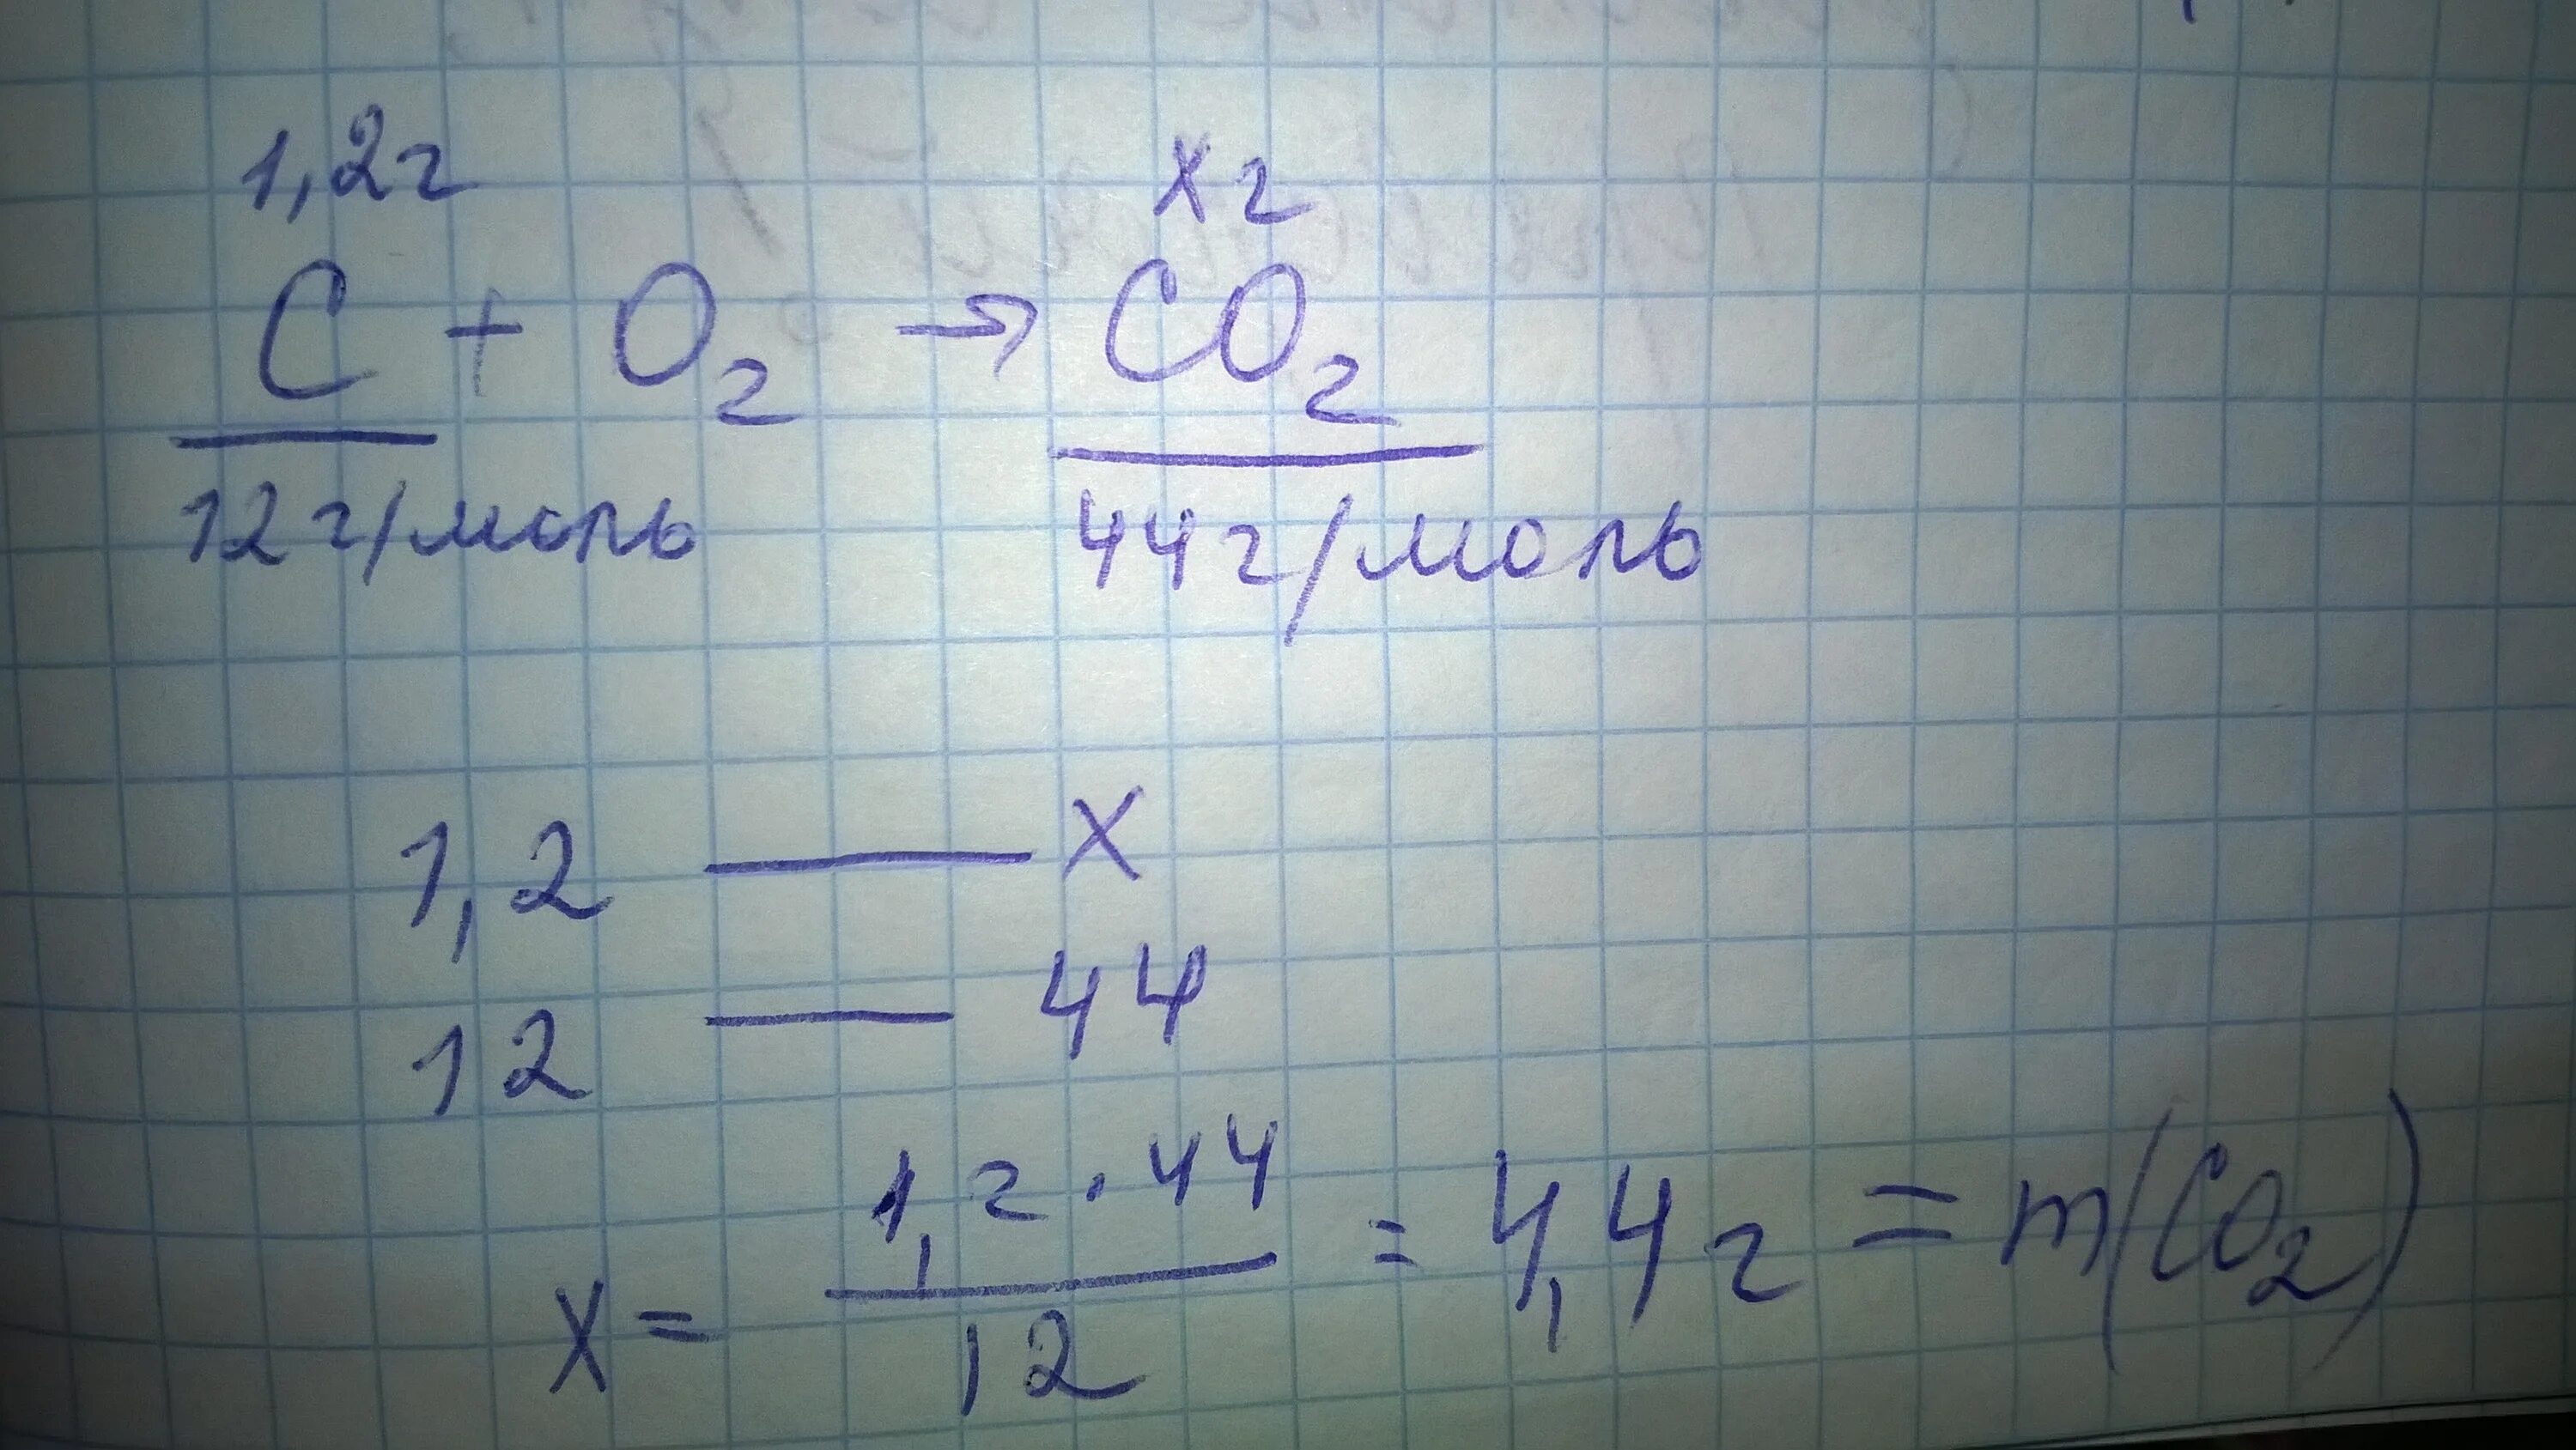 1,2г хг
C + O₂ → CO₂
12г/моль 44г/моль
1,2 — х
12 — 44
х = 1,2 · 44 / 12 = 4,4г = m(CO₂)